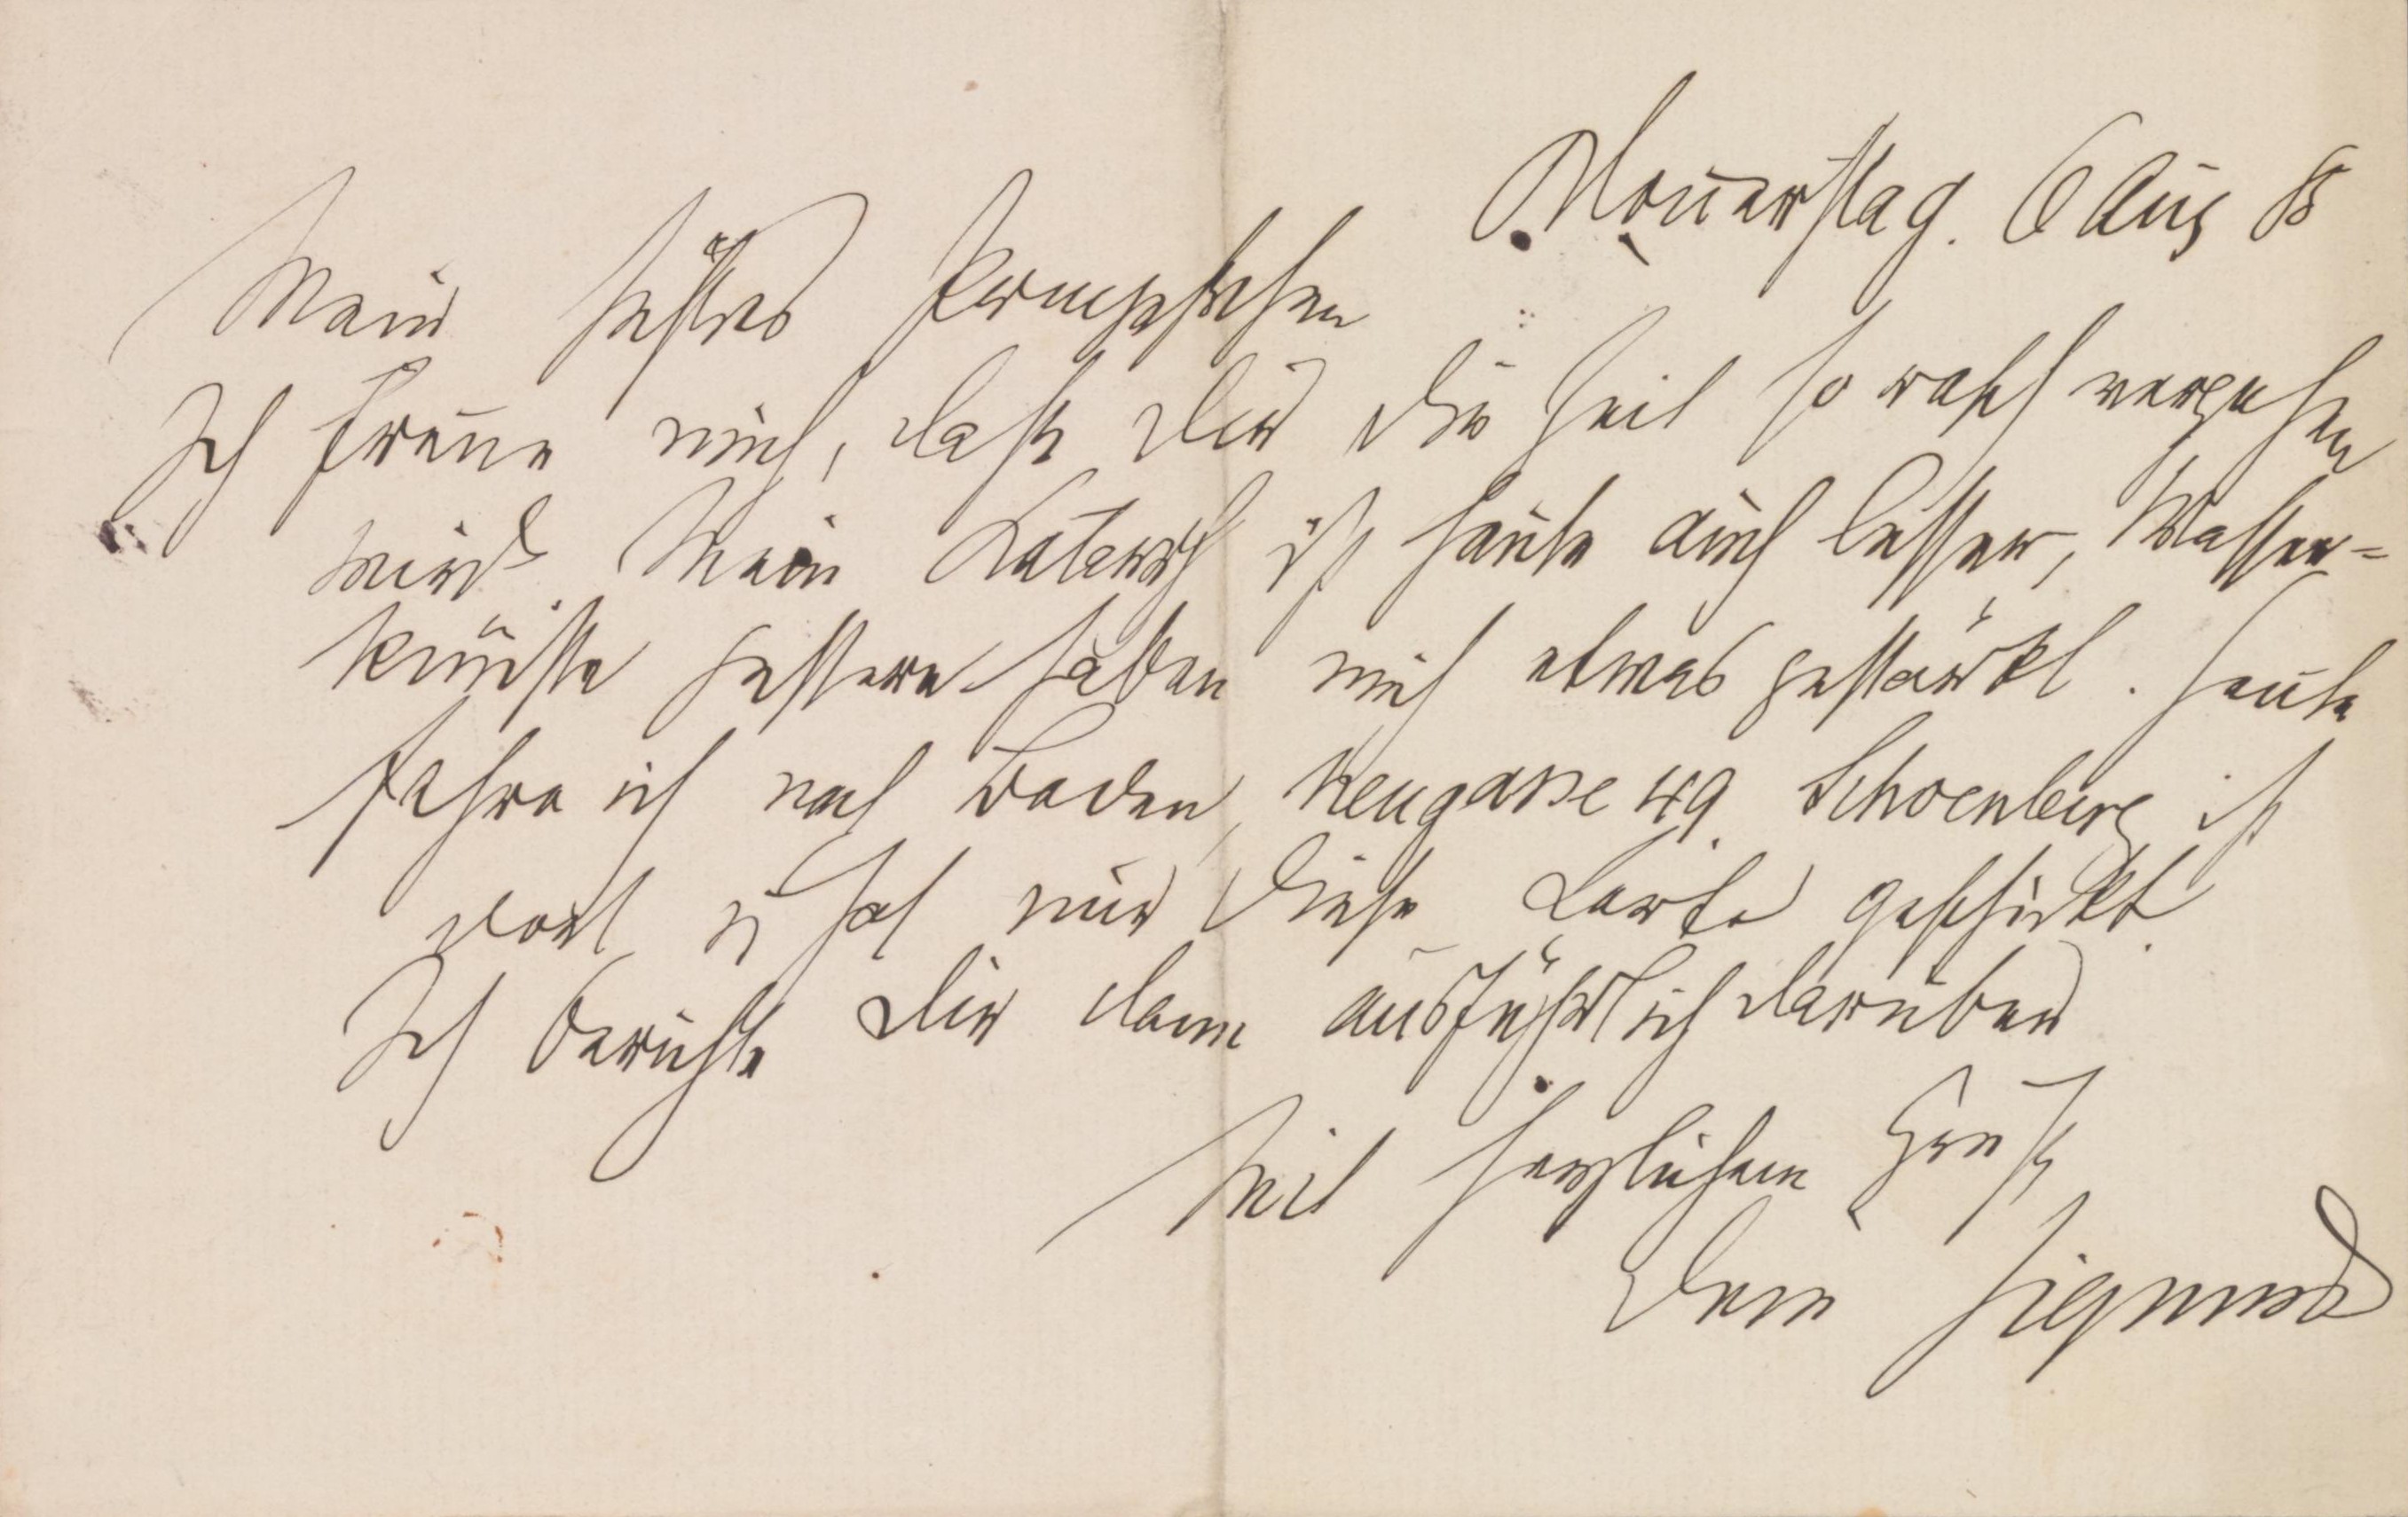 Donnerstag. 6 Aug 85
Mein süßes Prinzeßchen
Ich freue mich, daß Dir die Zeit so rasch vergehen
wird. Mein Katarrh ist heute auch besser, Wasser=
künste gestern haben mich etwas gestärkt. Heute
fahre ich nach Baden, Neugasse 49. Schoenberg ist
dort u hat mir diese Karte geschickt.
Ich berichte Dir dann ausführlich darüber
Mit herzlichem Gruß
Dein Sigmund